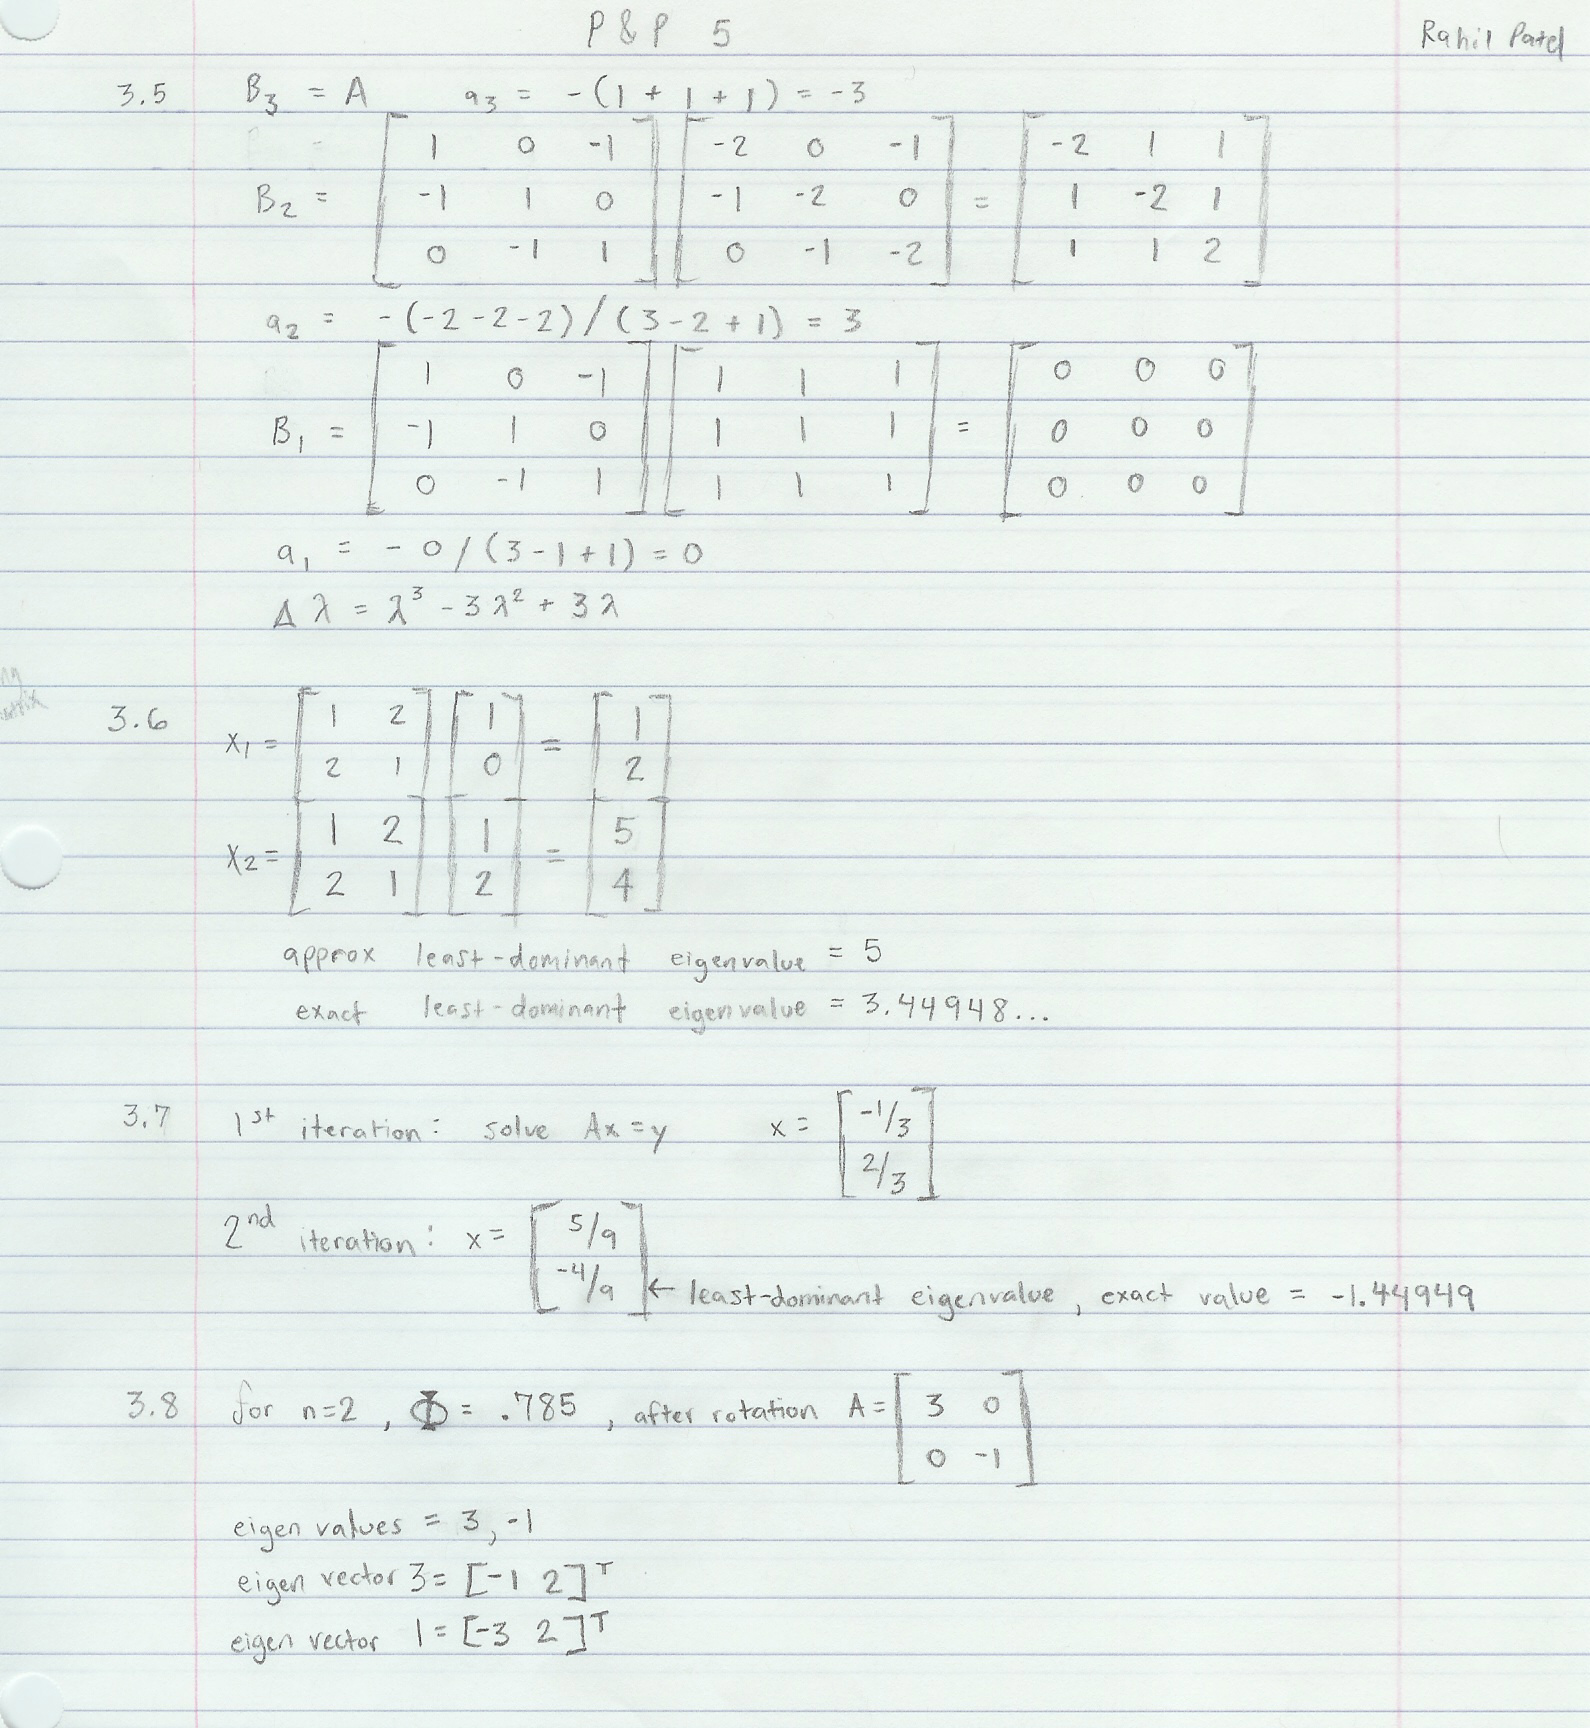 P & P 5
Rahil Patel
3.5 B₃ = A a₃ = -(1 + 1 + 1) = -3
B₂ = [1 0 -1; -1 1 0; 0 -1 1] [-2 0 -1; -1 -2 0; 0 -1 -2] = [-2 1 1; 1 -2 1; 1 1 2]
a₂ = -(-2-2-2)/(3-2+1) = 3
B₁ = [1 0 -1; -1 1 0; 0 -1 1] [1 1 1; 1 1 1; 1 1 1] = [0 0 0; 0 0 0; 0 0 0]
a₁ = - 0/(3-1+1) = 0
Δ λ = λ³ - 3λ² + 3λ
3.6 x₁ = [1 2; 2 1] [1; 0] = [1; 2]
x₂ = [1 2; 2 1] [1; 2] = [5; 4]
approx least-dominant eigenvalue = 5
exact least-dominant eigenvalue = 3.44948...
3.7 1st iteration: solve Ax = y x = [-1/3; 2/3]
2nd iteration: x = [5/9; -4/9] ← least-dominant eigenvalue, exact value = -1.44949
3.8 for n=2, Φ = .785, after rotation A = [3 0; 0 -1]
eigen values = 3, -1
eigen vector 3 = [-1 2]ᵀ
eigen vector 1 = [-3 2]ᵀ